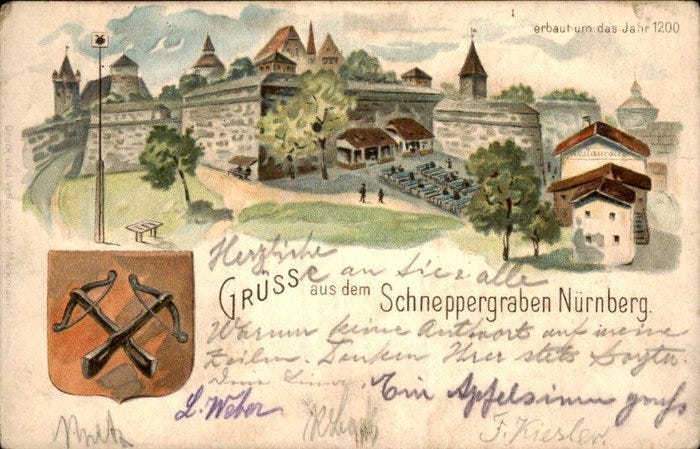 erbaut um das Jahr 1200
Restauration
Herzliche
GRUSS
e an Sie alle
aus dem Schneppergraben Nürnberg.
Warum keine Antwort auf meine
Zeilen. Denken Ihrer stets
Ein Apfelsinen gruß
L. Weber
F. Kiesler.